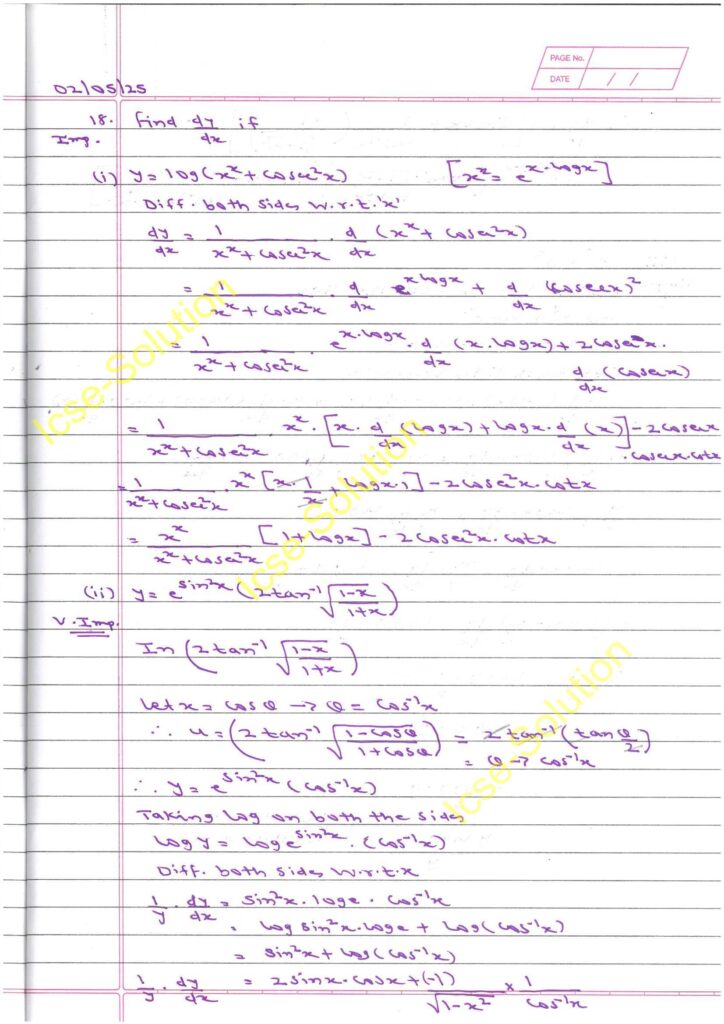 PAGE No.
DATE / /
02/05/25
18. Find dy/dx if
Imp.
(i) y = log(x^x + cosec²x) [x^x = e^(x·logx)]
Diff. both sides w.r.t. 'x'
dy/dx = 1/(x^x + cosec²x) · d/dx (x^x + cosec²x)
= 1/(x^x + cosec²x) · d/dx e^(xlogx) + d/dx (cosecx)²
= 1/(x^x + cosec²x) · e^(x·logx) · d/dx (x·logx) + 2cosecx·
d/dx (cosecx)
= 1/(x^x + cosec²x) x^x · [x· d/dx (logx) + logx· d/dx (x)] - 2cosecx
·cosecx·cotx
= 1/(x^x + cosec²x) · x^x [x· 1/x + logx·1] - 2cosec²x·cotx
= x^x/(x^x + cosec²x) [1 + logx] - 2cosec²x·cotx
(ii) y = e^(sin²x) (2tan⁻¹ √((1-x)/(1+x)))
V. Imp.
In (2tan⁻¹ √((1-x)/(1+x)))
let x = cosθ → θ = cos⁻¹x
∴ u = (2tan⁻¹ √((1-cosθ)/(1+cosθ))) = 2tan⁻¹(tan θ/2)
= θ → cos⁻¹x
∴ y = e^(sin²x) (cos⁻¹x)
Taking log on both the sides
log y = log e^(sin²x) · (cos⁻¹x)
Diff. both sides w.r.t.x
1/y · dy/dx = sin²x·loge · cos⁻¹x
= log sin²x·loge + log(cos⁻¹x)
= sin²x + log(cos⁻¹x)
1/y · dy/dx = 2sinx·cosx + (-1)/√(1-x²) × 1/cos⁻¹x
Icse-Solution
Icse-Solution
Icse-Solution